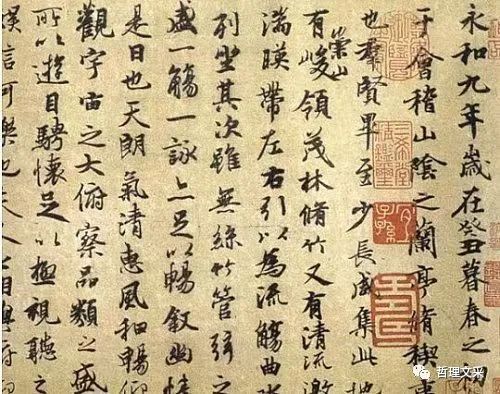 永和九年歲在癸丑暮春之初
于會稽山陰之蘭亭脩稧事
也羣賢畢至少長咸集此地
崇山
有峻領茂林脩竹又有清流激
湍暎帶左右引以為流觴曲水
列坐其次雖無絲竹管弦之
盛一觴一詠亦足以暢叙幽情
是日也天朗氣清惠風和暢仰
觀宇宙之大俯察品類之盛
所以遊目騁懷足以極視聽之
娛信可樂也夫人之相與俯仰
哲理文采